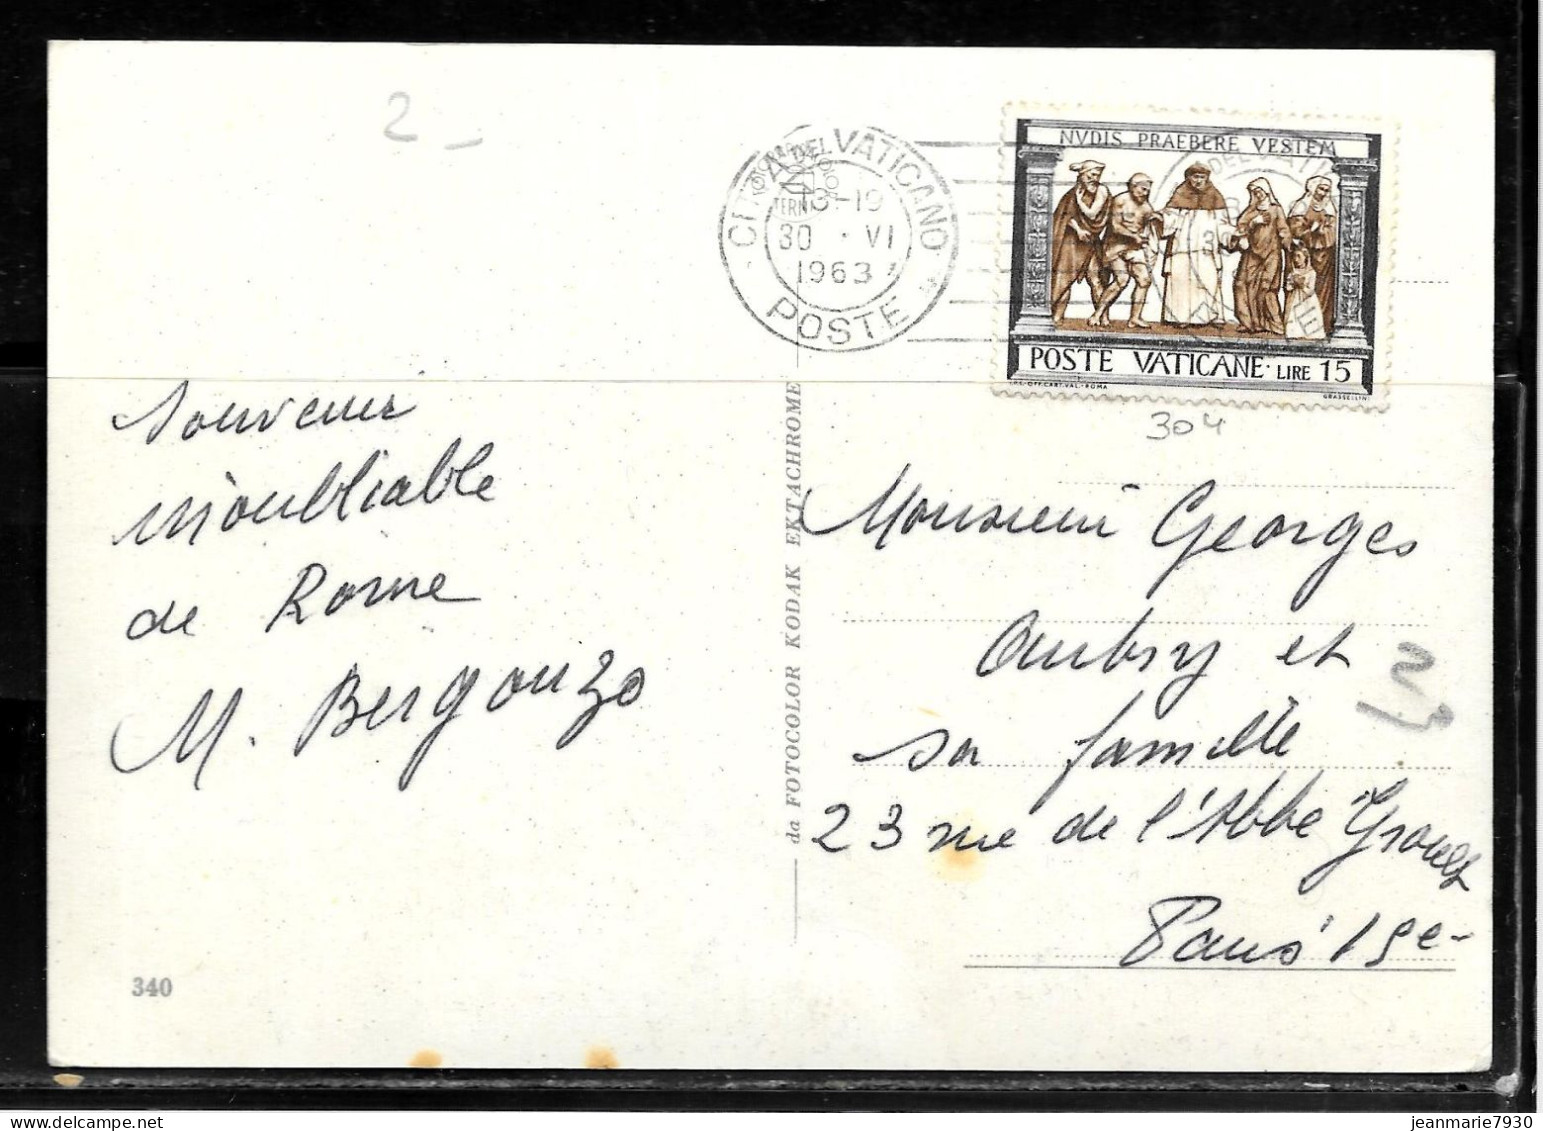 2 -
CITTÀ DEL VATICANO
18-19
30 · VI
1963
POSTE
NVDIS PRAEBERE VESTEM
POSTE VATICANE · LIRE 15
GRASSELLINI
304
Souvenir
inoubliable
de Rome
M. Bergonzo
da FOTOCOLOR KODAK EKTACHROME
Monsieur Georges
Aubry et
sa famille
23 rue de l'Abbé Groult
Paris 15e
340
jeanmarie7930